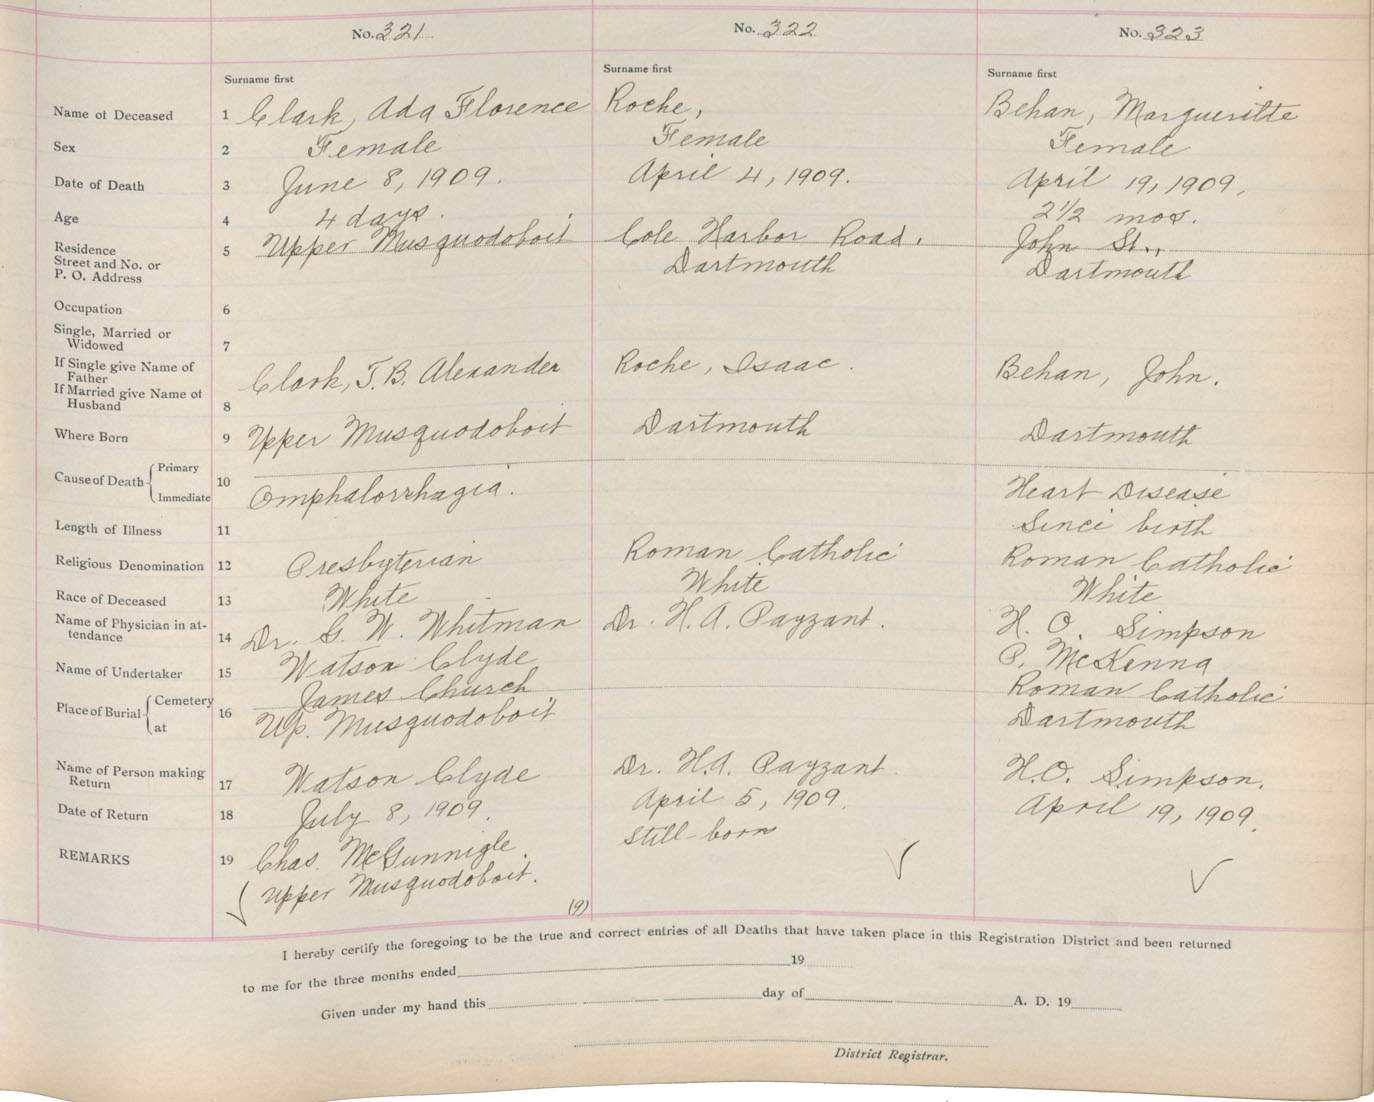 No. 321
No. 322
No. 323
Surname first
Surname first
Surname first
Name of Deceased 1 Clark, Ada Florence
Roche,
Behan, Margueritte
Sex 2 Female
Female
Female
Date of Death 3 June 8, 1909.
April 4, 1909.
April 19, 1909.
Age 4 4 days.
2 1/2 mos.
Residence
Street and No. or
P. O. Address
5 Upper Musquodoboit
Cole Harbor Road,
Dartmouth
John St.,
Dartmouth
Occupation 6
Single, Married or
Widowed 7
If Single give Name of
Father
If Married give Name of
Husband 8
Clark, T. B. Alexander
Roche, Isaac.
Behan, John.
Where Born 9 Upper Musquodoboit
Dartmouth
Dartmouth
Cause of Death Primary
Immediate 10
Omphalorrhagia.
Heart Disease
Length of Illness 11
Since birth
Religious Denomination 12 Presbyterian
Roman Catholic
Roman Catholic
Race of Deceased 13 White
White
White
Name of Physician in at-
tendance 14 Dr. G. W. Whitman
Dr. H. A. Payzant.
H. O. Simpson
Name of Undertaker 15 Watson Clyde
P. McKenna
Place of Burial Cemetery
at 16
James Church
Up. Musquodoboit
Roman Catholic
Dartmouth
Name of Person making
Return 17 Watson Clyde
Dr. H. A. Payzant
H. O. Simpson.
Date of Return 18 July 8, 1909.
April 5, 1909.
April 19, 1909.
REMARKS 19 Chas. McGunnigle
Upper Musquodoboit.
Still-born
(9)
I hereby certify the foregoing to be the true and correct entries of all Deaths that have taken place in this Registration District and been returned
to me for the three months ended 19
Given under my hand this day of A. D. 19
District Registrar.